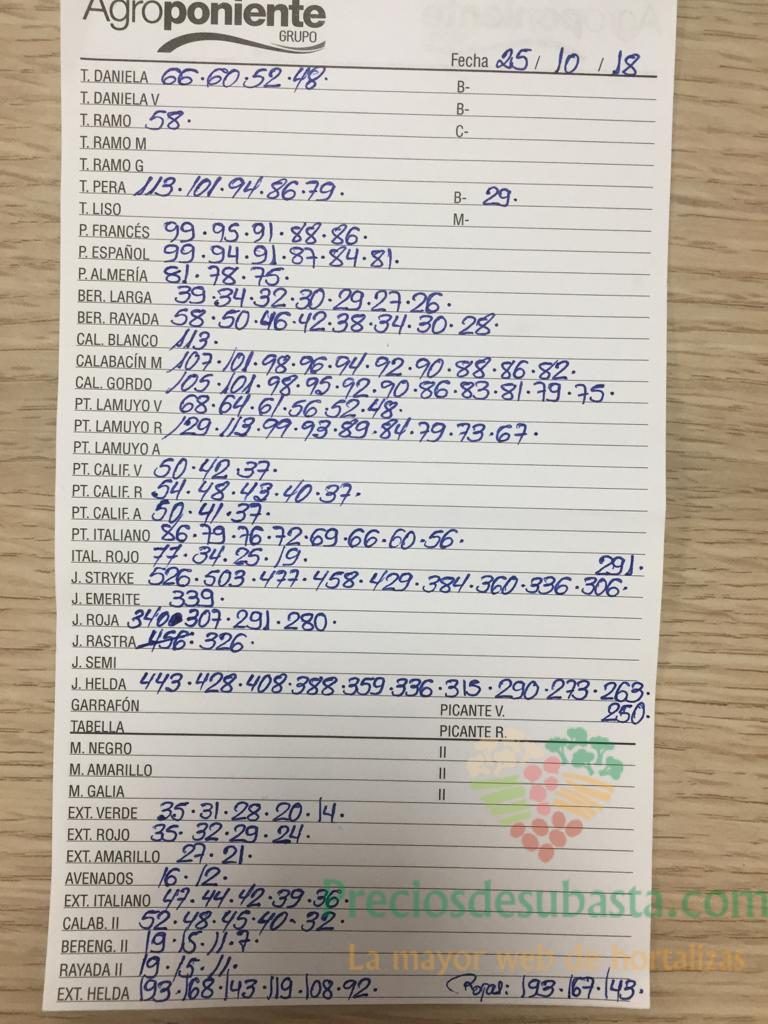 Agroponiente
GRUPO
Fecha 25 / 10 / 18
T. DANIELA 66·60·52·48· B-
T. DANIELA V B-
T. RAMO 58· C-
T. RAMO M
T. RAMO G
T. PERA 113·101·94·86·79· B- 29·
T. LISO M-
P. FRANCÉS 99·95·91·88·86·
P. ESPAÑOL 99·94·91·87·84·81·
P. ALMERÍA 81·78·75·
BER. LARGA 39·34·32·30·29·27·26·
BER. RAYADA 58·50·46·42·38·34·30·28·
CAL. BLANCO 113·
CALABACÍN M 107·101·98·96·94·92·90·88·86·82·
CAL. GORDO 105·101·98·95·92·90·86·83·81·79·75·
PT. LAMUYO V 68·64·61·56·52·48·
PT. LAMUYO R 129·113·99·93·89·84·79·73·67·
PT. LAMUYO A
PT. CALIF. V 50·42·37·
PT. CALIF. R 54·48·43·40·37·
PT. CALIF. A 50·41·37·
PT. ITALIANO 86·79·76·72·69·66·60·56·
ITAL. ROJO 77·34·25·19· 291·
J. STRYKE 526·503·477·458·429·384·360·336·306·
J. EMERITE 339·
J. ROJA 340·307·291·280·
J. RASTRA 456·326·
J. SEMI
J. HELDA 443·428·408·388·359·336·315·290·273·263·
GARRAFÓN PICANTE V. 250·
TABELLA PICANTE R.
M. NEGRO II
M. AMARILLO II
M. GALIA II
EXT. VERDE 35·31·28·20·14·
EXT. ROJO 35·32·29·24·
EXT. AMARILLO 27·21·
AVENADOS 16·12·
EXT. ITALIANO 47·44·42·39·36·
Preciosdesubasta.com
CALAB. II 52·48·45·40·32·
BERENG. II 19·15·11·7·
La mayor web de hortalizas
RAYADA II 19·15·11·
EXT. HELDA 193·168·143·119·108·92· Rojas: 193·167·143·